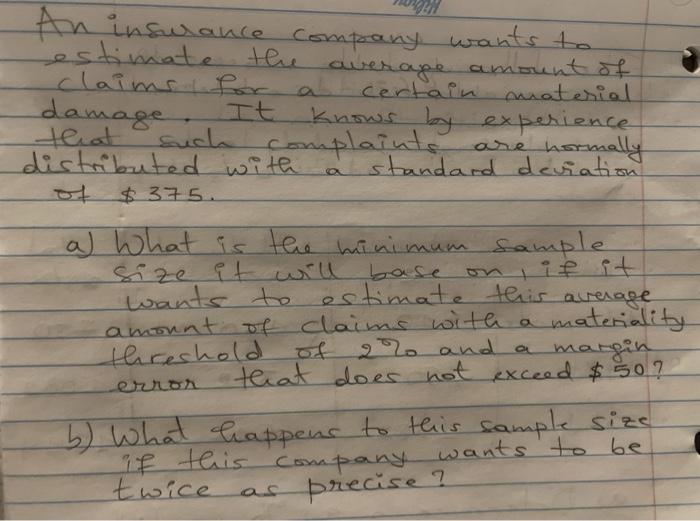 An insurance company wants to
estimate the average amount of
claims for a certain material
damage. It knows by experience
that such complaints are normally
distributed with a standard deviation
of $375.
a) What is the minimum sample
size it will base on, if it
wants to estimate this average
amount of claims with a materiality
threshold of 2% and a margin
error that does not exceed $50?
b) What happens to this sample size
if this company wants to be
twice as precise?